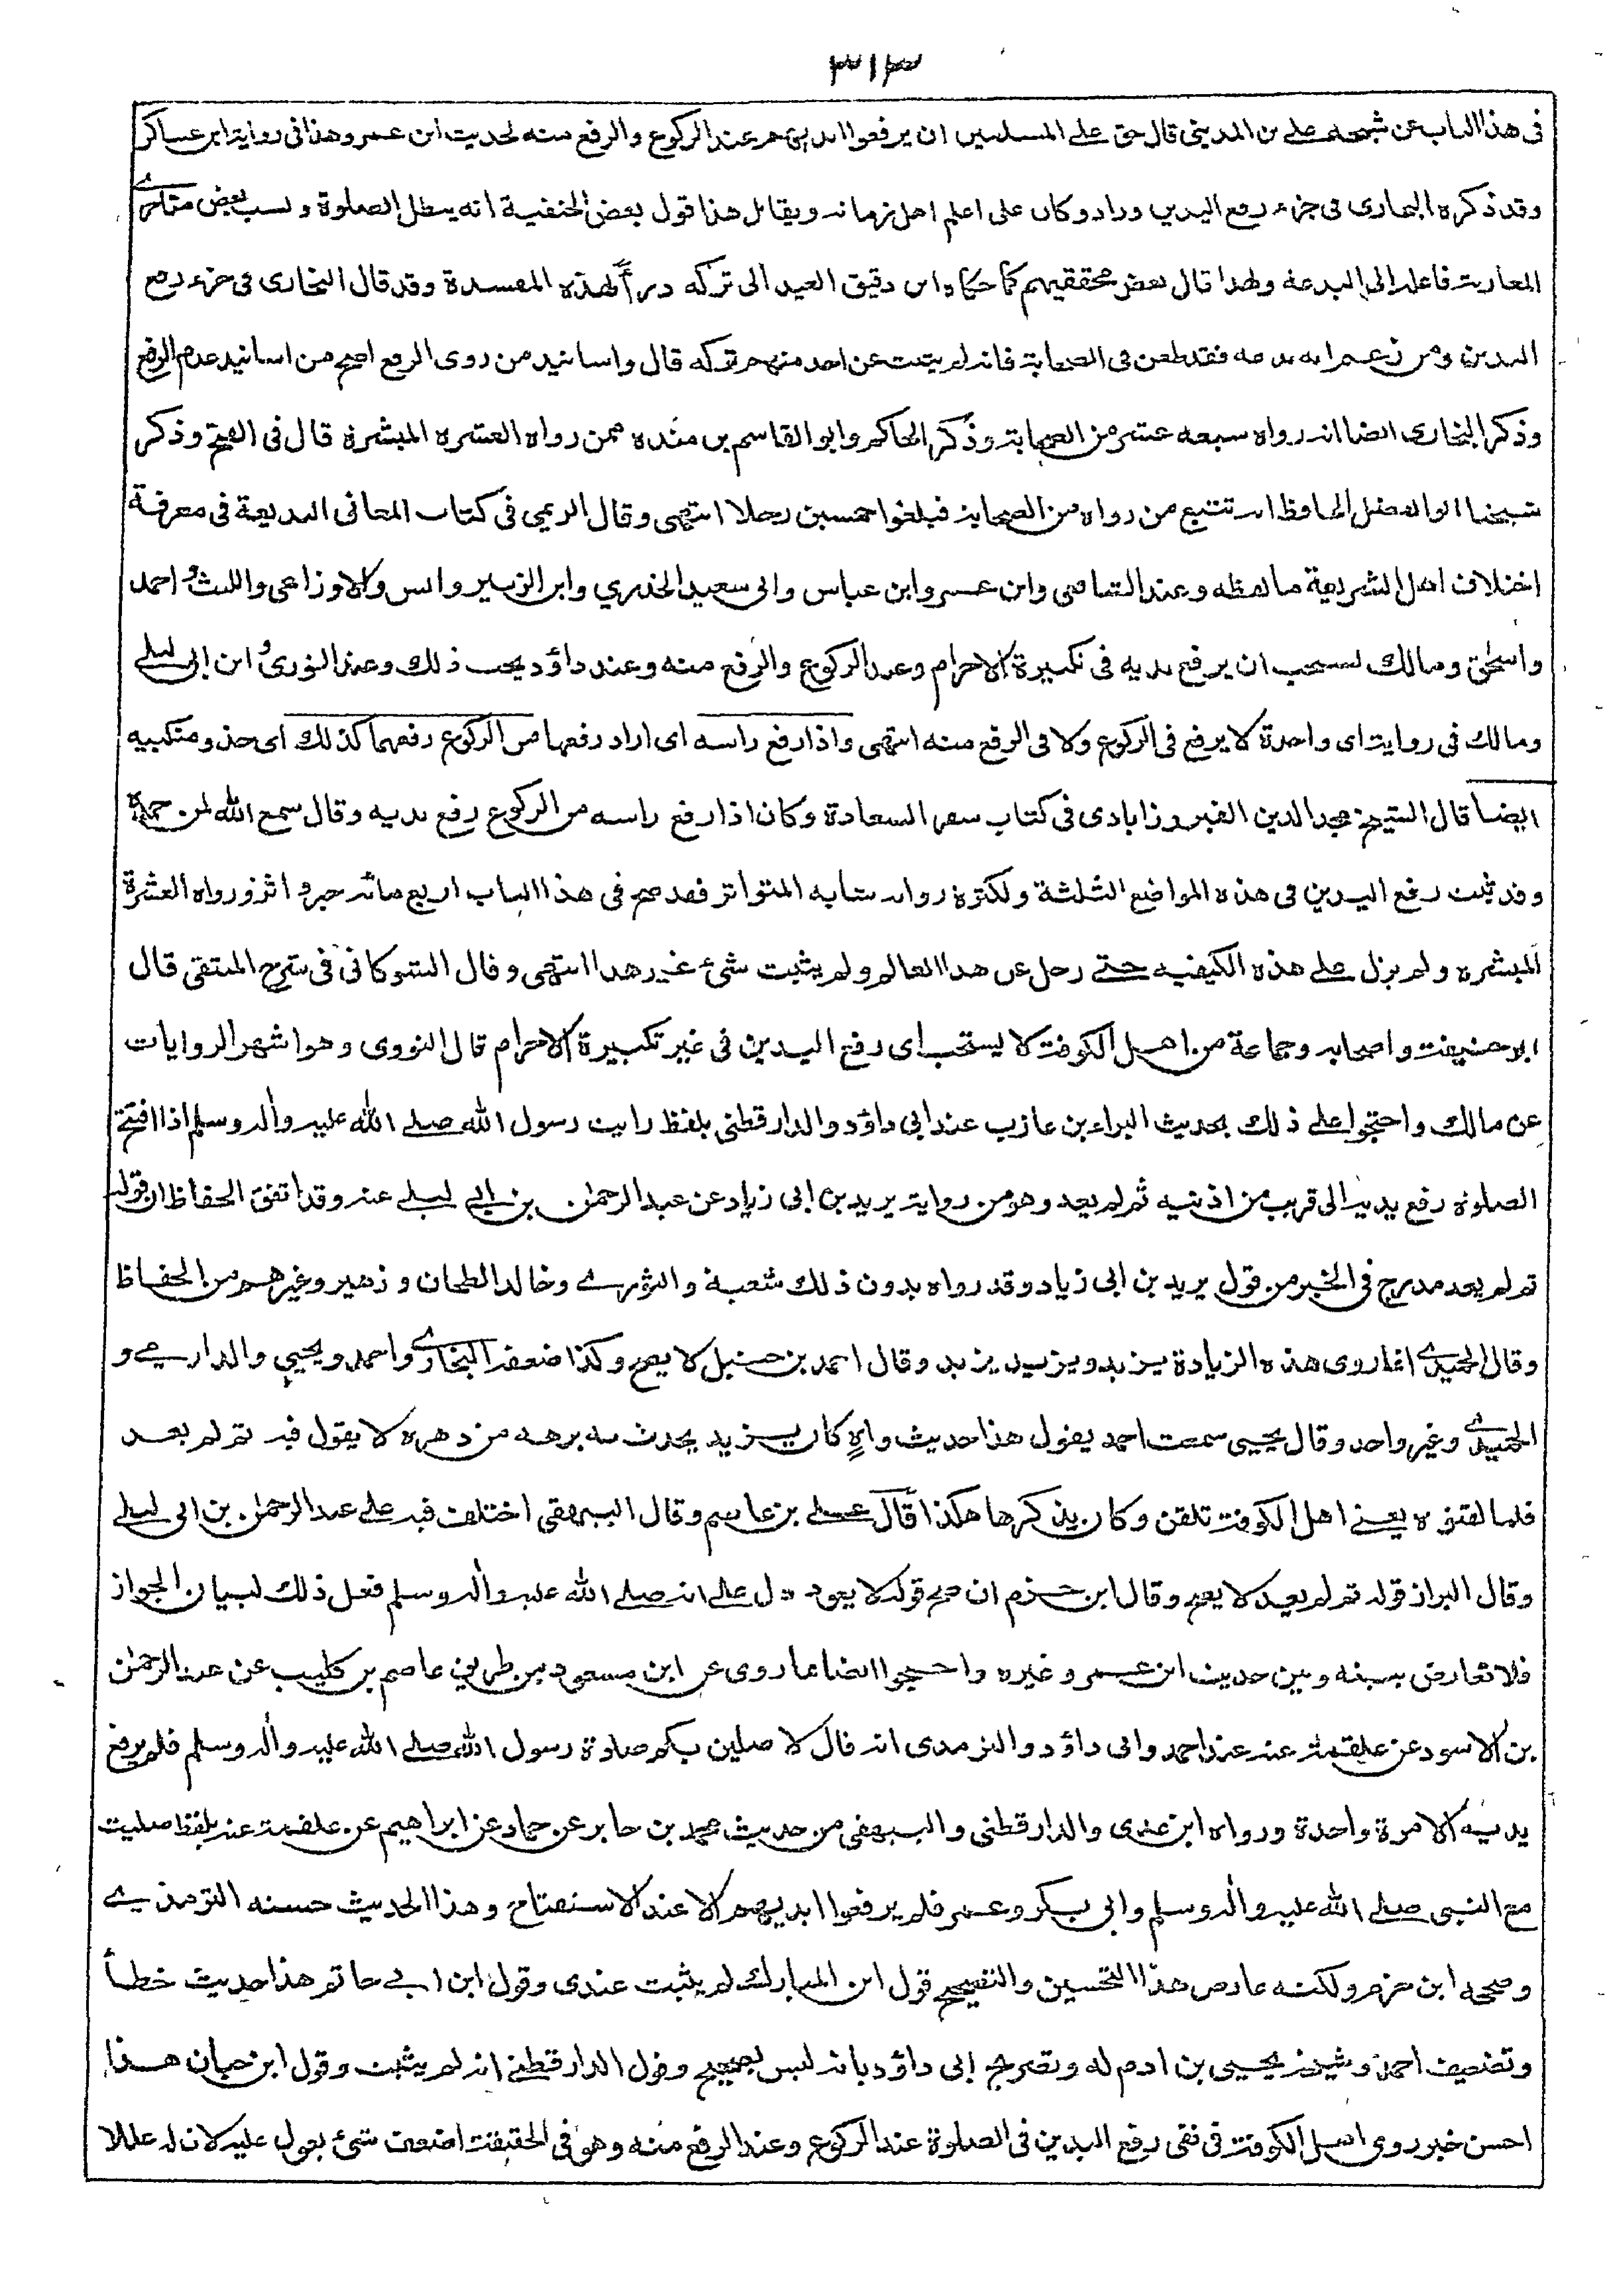 ٣١٣
فى هذا الباب عن شيخه على بن المدينى قال حق على المسلمين ان يرفعوا ايديهم عند الركوع والرفع منه لحديث ابن عمر وهذا فى رواية ابن عساكر
وقد ذكره البخارى فى جزء رفع اليدين وزاد وكان على اعلم اهل زمانه ويقابل هذا قول بعض الحنفية انه يبطل الصلوة ونسب بعض متاخرى
المغاربة فاعله الى البدعة ولهذا قال بعض محققيهم كما حكاه ابن دقيق العيد الى تركه درأً لهذه المفسدة وقد قال البخارى فى جزء رفع
اليدين ومن زعم انه بدعة فقد طعن فى الصحابة فانه لم يثبت عن احد منهم تركه قال واسانيد من روى الرفع اصح من اسانيد عدم الرفع
وذكر البخارى ايضا انه رواه سبعة عشر من الصحابة وذكر الحاكم وابو القاسم بن منده ممن رواه العشرة المبشرة قال فى الفتح وذكر
شيخنا ابو الفضل الحافظ انه تتبع من رواه من الصحابة فبلغوا خمسين رجلا انتهى وقال الريمى فى كتاب المعانى البديعة فى معرفة
اختلاف اهل الشريعة ما لفظه وعند الشافعى وابن عمر وابن عباس وابى سعيد الخدري وابن الزبير وانس والاوزاعى والليث و احمد
واسحاق ومالك يستحب ان يرفع يديه فى تكبيرة الاحرام وعند الركوع والرفع منه وعند داؤد يجب ذلك وعند الثورى و ابن ابى ليلى
ومالك فى رواية اى واحدة لا يرفع فى الركوع ولا فى الرفع منه انتهى واذا رفع راسه اى اراد رفعها من الركوع رفعهما كذلك اى حذو منكبيه
ايضا قال الشيخ مجد الدين الفيروزابادى فى كتاب سفر السعادة وكان اذا رفع راسه من الركوع رفع يديه وقال سمع الله لمن حمده
وقد ثبت رفع اليدين فى هذه المواضع الثلثة ولكثرة رواته شابه المتواتر فقد صح فى هذا الباب اربع مائة خبر و اثر ورواه العشرة
المبشرة ولم يزل على هذه الكيفية حتى رحل عن هذا العالم ولم يثبت شئ غير هذا انتهى وقال الشوكانى فى شرح المنتقى قال
ابو حنيفة واصحابه وجماعة من اهل الكوفة لا يستحب اى رفع اليدين فى غير تكبيرة الاحرام قال النووى وهو اشهر الروايات
عن مالك واحتجوا على ذلك بحديث البراء بن عازب عند ابى داؤد والدارقطنى بلفظ رايت رسول الله صلى الله عليه واله وسلم اذا افتتح
الصلوة رفع يديه الى قريب من اذنيه ثم لم يعد وهو من رواية يزيد بن ابى زياد عن عبد الرحمن بن ابى ليلى عنه وقد اتفق الحفاظ ان قوله
ثم لم يعد مدرج فى الخبر من قول يزيد بن ابى زياد وقد رواه بدون ذلك شعبة والثورى وخالد الطحان و زهير وغيرهم من الحفاظ
وقال الحميدى انما روى هذه الزيادة يزيد ويزيد يزيد وقال احمد بن حنبل لا يصح وكذا ضعفه البخارى واحمد ويحيى والدارمى و
الحميدى وغير واحد وقال يحيى سمعت احمد يقول هذا حديث واهٍ كان يزيد يحدث به برهة من دهره لا يقول فيه ثم لم يعد
فلما لقنوه يعنى اهل الكوفة تلقن وكان يذكرها هكذا قال على بن عاصم وقال البيهقى اختلف فيه على عبد الرحمن بن ابى ليلى
وقال البزاز قوله ثم لم يعد لا يصح وقال ابن حزم ان صح قوله لا يعود دل على انه صلى الله عليه واله وسلم فعل ذلك لبيان الجواز
فلا تعارض بينه وبين حديث ابن عمر وغيره واحتجوا ايضا بما روى عن ابن مسعود من طريق عاصم بن كليب عن عبد الرحمن
بن الاسود عن علقمة عنه عند احمد وابى داؤد والترمذى انه قال لا صلين بكم صلوة رسول الله صلى الله عليه واله وسلم فلم يرفع
يديه الا مرة واحدة ورواه ابن عدى والدارقطنى والبيهقى من حديث محمد بن جابر عن حماد عن ابراهيم عن علقمة عنه بلفظ صليت
مع النبى صلى الله عليه واله وسلم وابى بكر وعمر فلم يرفعوا ايديهم الا عند الاستفتاح وهذا الحديث حسنه الترمذى
وصححه ابن حزم ولكنه عارض هذا التحسين والتصحيح قول ابن المبارك لم يثبت عندى وقول ابن ابى حاتم هذا حديث خطأ
وتضعيف احمد وشيخه يحيى بن ادم له وتصريح ابى داؤد بانه ليس بصحيح وقول الدارقطنى انه لم يثبت وقول ابن حبان هذا
احسن خبر روى اهل الكوفة فى نفى رفع اليدين فى الصلوة عند الركوع وعند الرفع منه وهو فى الحقيقة اضعف شئ يعول عليه لان له عللا